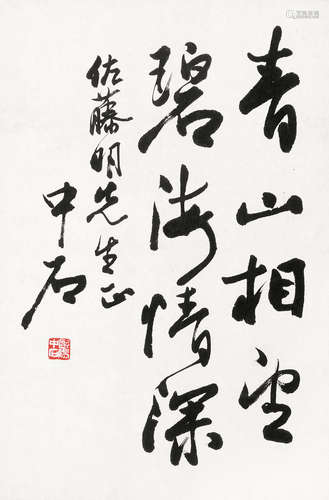 青山相望
碧海情深
佐藤明先生正
中石